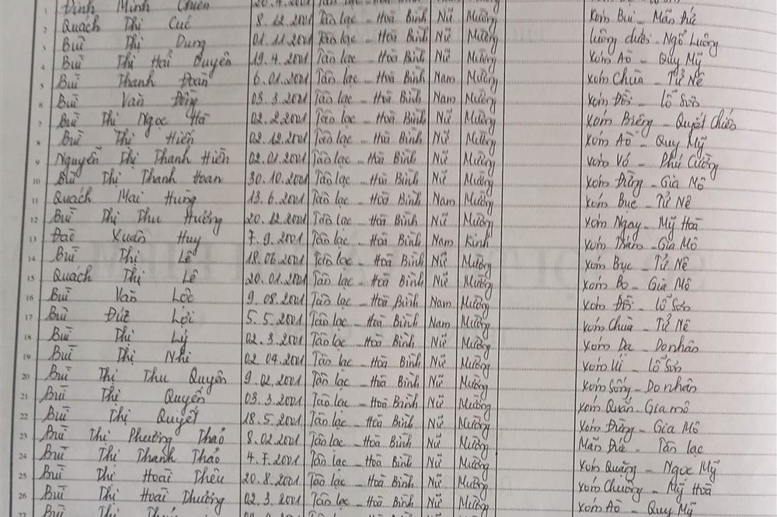 1 Đinh Minh Chiến 20.4.2001 Nữ Mường
2 Quách Thị Cúc 8.12.2001 Tân lạc - Hoà Bình Nữ Mường xóm Bui - Mãn Đức
3 Bùi Thị Dung 01.11.2001 Tân lạc - Hoà Bình Nữ Mường luông dưới - Ngổ Luông
4 Bùi Thị Hai Duyên 19.4.2001 Tân lạc - Hoà Bình Nữ Mường xóm Aò - Quy Mỹ
5 Bùi Thanh Đoàn 6.01.2001 Tân lạc - Hoà Bình Nam Mường xóm Chùa - Tử Nê
6 Bùi Văn Đông 03.3.2001 Tân lạc - Hoà Bình Nam Mường xóm Đồi - Lỗ Sơn
7 Bùi Thị Ngọc Hà 02.2.2001 Tân lạc - Hoà Bình Nữ Mường xóm Biêng - Quyết Chiến
8 Bùi Thị Hiền 02.12.2001 Tân lạc - Hoà Bình Nữ Mường xóm Aò - Quy Mỹ
9 Nguyễn Thị Thanh Hiền 02.01.2001 Tân lạc - Hoà Bình Nữ Mường xóm Vó - Phú Cường
10 Bùi Thị Thanh Hoan 30.10.2001 Tân lạc - Hoà Bình Nữ Mường xóm Đừng - Gia Mô
11 Quách Mai Hưng 13.6.2001 Tân lạc - Hoà Bình Nam Mường xóm Bục - Tử Nê
12 Bùi Thị Thu Hường 20.12.2001 Tân lạc - Hoà Bình Nữ Mường xóm Ngay - Mỹ Hoà
13 Đào Xuân Huy 7.9.2001 Tân lạc - Hoà Bình Nam Kinh xóm - Gia Mô
14 Bùi Thị Lê 18.06.2001 Tân lạc - Hoà Bình Nữ Mường xóm Bục - Tử Nê
15 Quách Thị Lê 20.01.2001 Tân lạc - Hoà Bình Nữ Mường xóm Bo - Gia Mô
16 Bùi Văn Lộc 9.08.2001 Tân lạc - Hoà Bình Nam Mường xóm Đồi - Lỗ Sơn
17 Bùi Đức Lợi 5.5.2001 Tân lạc - Hoà Bình Nam Mường xóm Chùa - Tử Nê
18 Bùi Thị Lý 02.3.2001 Tân lạc - Hoà Bình Nữ Mường xóm Da - Do nhân
19 Bùi Thị Nhi 02.04.2001 Tân lạc - Hoà Bình Nữ Mường xóm - Lỗ Sơn
20 Bùi Thị Thu Quyên 9.02.2001 Tân lạc - Hoà Bình Nữ Mường xóm Sống - Do nhân
21 Bùi Thị Quyên 03.3.2001 Tân lạc - Hoà Bình Nữ Mường xóm Quắn - Gia mô
22 Bùi Thị Quyết 18.5.2001 Tân lạc - Hoà Bình Nữ Mường xóm Đừng - Gia Mô
23 Bùi Thị Phương Thảo 8.02.2001 Tân lạc - Hoà Bình Nữ Mường Mãn Đức - Tân lạc
24 Bùi Thị Thanh Thảo 4.7.2001 Tân lạc - Hoà Bình Nữ Mường xóm Quãng - Ngọc Mỹ
25 Bùi Thị Hoài Thêu 20.8.2001 Tân lạc - Hoà Bình Nữ Mường xóm Chuông - Mỹ Hoà
26 Bùi Thị Hoài Thương 02.3.2001 Tân lạc - Hoà Bình Nữ Mường xóm Aò - Quy Mỹ
27 Bùi Thị